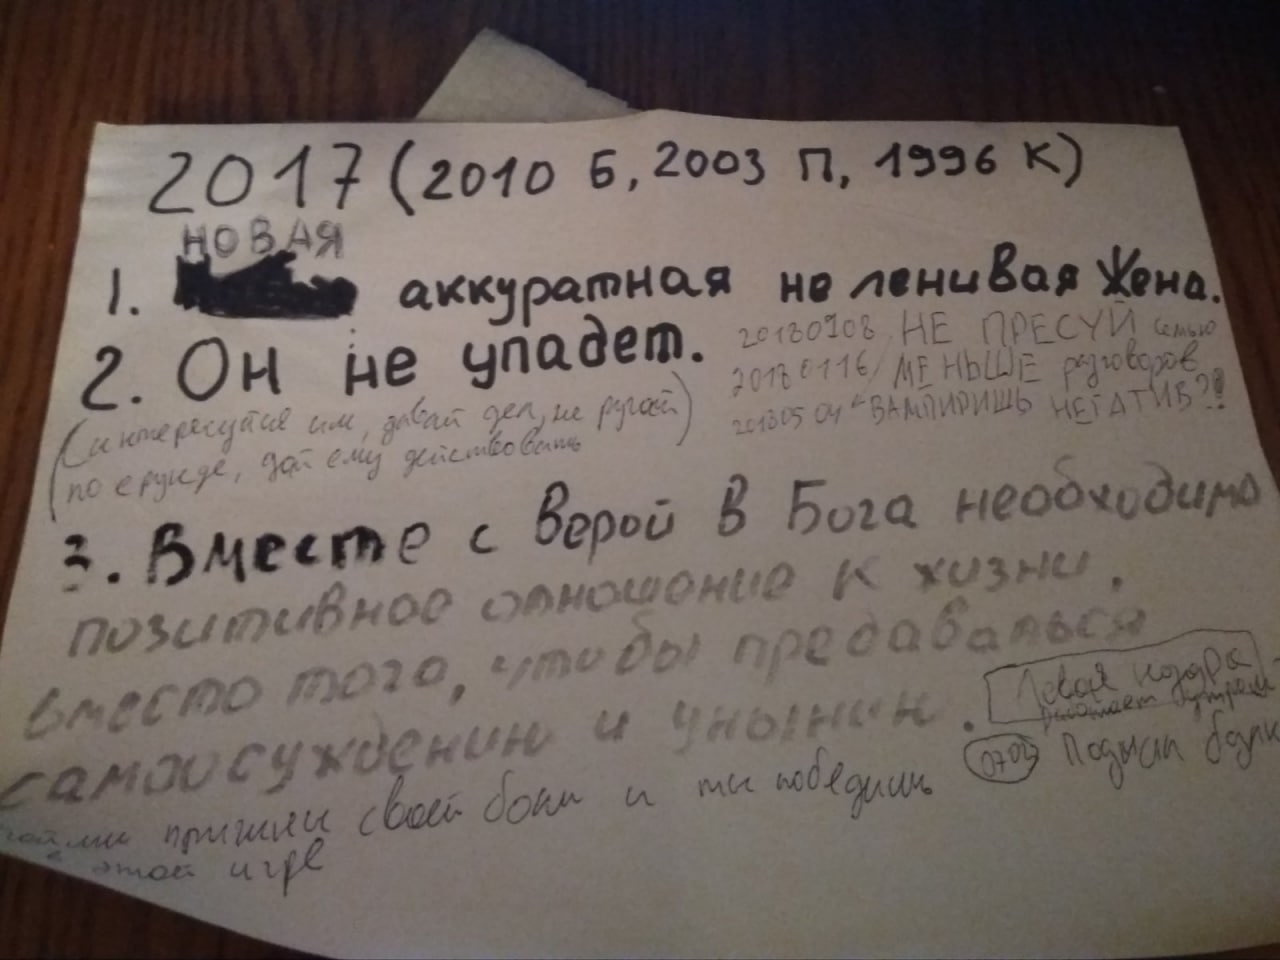 2017 (2010 Б, 2003 П, 1996 К)
НОВАЯ
1. аккуратная не ленивая Жена.
2. Он не упадет.
20180108 НЕ ПРЕСУЙ семью
20180116/ МЕНЬШЕ разговоров
20180504 "ВАМПИРИШЬ НЕГАТИВ"?!
(интересуйся им, давай дел, не ругай)
по ерунде, дай ему действовать
3. Вместе с верой в Бога необходимо
позитивное отношение к жизни,
вместо того, чтобы предаваться
самоосуждению и унынию.
Левая ноздря
работает утром
0703 Подмыли
причины своей боли и ты победишь
в этой игре